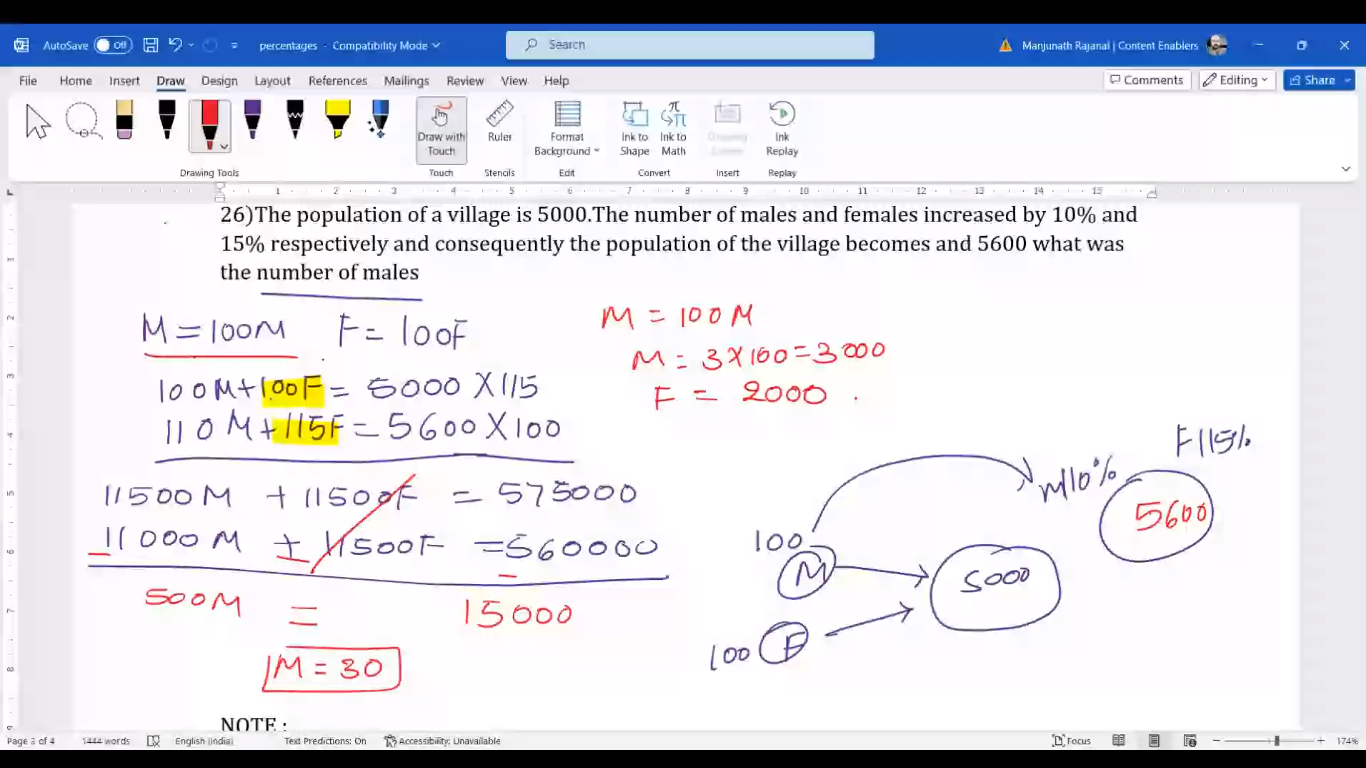 AutoSave Off percentages - Compatibility Mode Search Manjunath Rajanal | Content Enablers
File Home Insert Draw Design Layout References Mailings Review View Help Comments Editing Share
Draw with Touch
Ruler
Format Background
Ink to Shape
Ink to Math
Drawing Canvas
Ink Replay
Drawing Tools Touch Stencils Edit Convert Insert Replay
1 2 3 4 5 6 7 8 9 10 11 12 13 14 15
26)The population of a village is 5000.The number of males and females increased by 10% and
15% respectively and consequently the population of the village becomes and 5600 what was
the number of males
M = 100M F = 100F
100M+100F = 5000 X 115
110M+115F = 5600 X 100
11500M + 11500F = 575000
11000M ± 11500F = 560000
500M = 15000
M = 30
M = 100M
M = 3X100 = 3000
F = 2000 .
F115%
M110%
5600
100
M
5000
100 F
NOTE :
Page 2 of 4 1444 words English (India) Text Predictions: On Accessibility: Unavailable Focus 174%